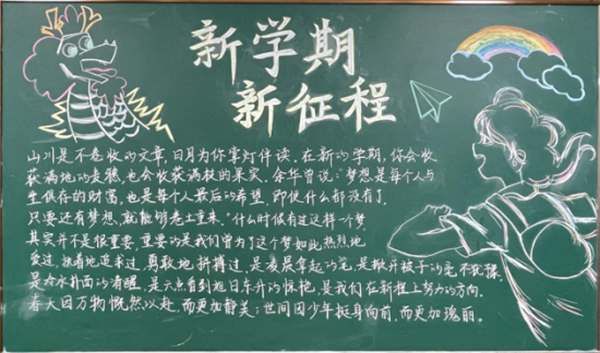 新学期
新征程
山川是不卷收的文章,日月为你掌灯伴读。在新的学期,你会收
获满地的麦穗,也会收获满枝的果实。余华曾说:"梦想是每个人与
生俱存的财富,也是每个人最后的希望,即使什么都没有了,
只要还有梦想,就能够卷土重来。"什么时候有过这样一个梦,
其实并不是很重要,重要的是我们曾为了这个梦如此热烈地
过,执着地追求过,勇敢地拼搏过,是凌晨拿起的笔,是掀开被子的毫不犹豫,
是冷水扑面的清醒,是六点看到旭日东升的惊艳,是我们在新征程上努力的方向。
春天因万物慨然以赴,而更加静美;世间因少年挺身向前,而更加瑰丽。